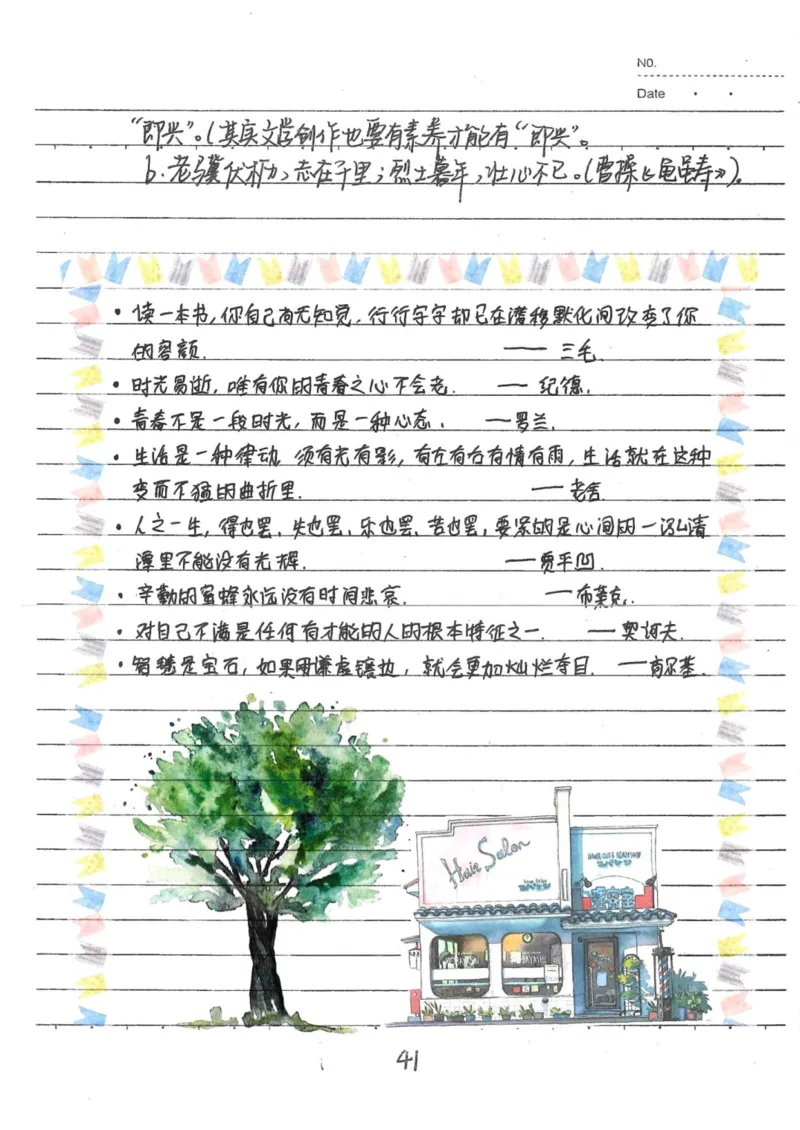 No.
Date
“即兴”。(其实文学创作也要有素养才能有“即兴”。
6. 老骥伏枥,志在千里;烈士暮年,壮心不已。(曹操《龟虽寿》).
• 读一本书,你自己尚无知觉,行行字字却已在潜移默化间改变了你
的容颜. —— 三毛.
• 时光易逝,唯有你的青春之心不会老. —— 纪德.
• 青春不是一段时光,而是一种心态. ——罗兰.
• 生活是一种律动,须有光有影,有左有右有情有雨,生活就在这种
变而不猛的曲折里. ——老舍.
• 人之一生,得也罢、失也罢、乐也罢、苦也罢,要紧的是心间的一泓清
潭里不能没有光辉. ——贾平凹.
• 辛勤的蜜蜂永远没有时间悲哀. ——布莱克.
• 对自己不满是任何有才能的人的根本特征之一. ——契诃夫.
• 智慧是宝石,如果用谦虚镶边,就会更加灿烂夺目. ——高尔基.
Hair Salon
HAIR CUT & BEAUTY
41